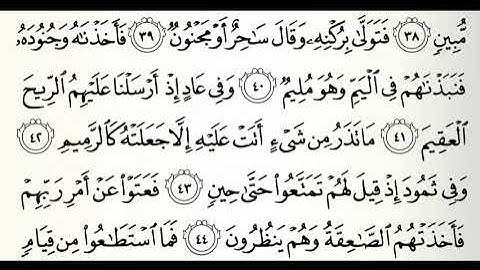 مُّبِينٍ ٣٨ فَتَوَلَّىٰ بِرُكْنِهِۦ وَقَالَ سَـٰحِرٌ أَوْ مَجْنُونٌ ٣٩ فَأَخَذْنَـٰهُ وَجُنُودَهُۥ
فَنَبَذْنَـٰهُمْ فِى ٱلْيَمِّ وَهُوَ مُلِيمٌ ٤٠ وَفِى عَادٍ إِذْ أَرْسَلْنَا عَلَيْهِمُ ٱلرِّيحَ
ٱلْعَقِيمَ ٤١ مَا تَذَرُ مِن شَىْءٍ أَتَتْ عَلَيْهِ إِلَّا جَعَلَتْهُ كَٱلرَّمِيمِ ٤٢
وَفِى ثَمُودَ إِذْ قِيلَ لَهُمْ تَمَتَّعُوا۟ حَتَّىٰ حِينٍ ٤٣ فَعَتَوْا۟ عَنْ أَمْرِ رَبِّهِمْ
فَأَخَذَتْهُمُ ٱلصَّـٰعِقَةُ وَهُمْ يَنظُرُونَ ٤٤ فَمَا ٱسْتَطَـٰعُوا۟ مِن قِيَامٍ